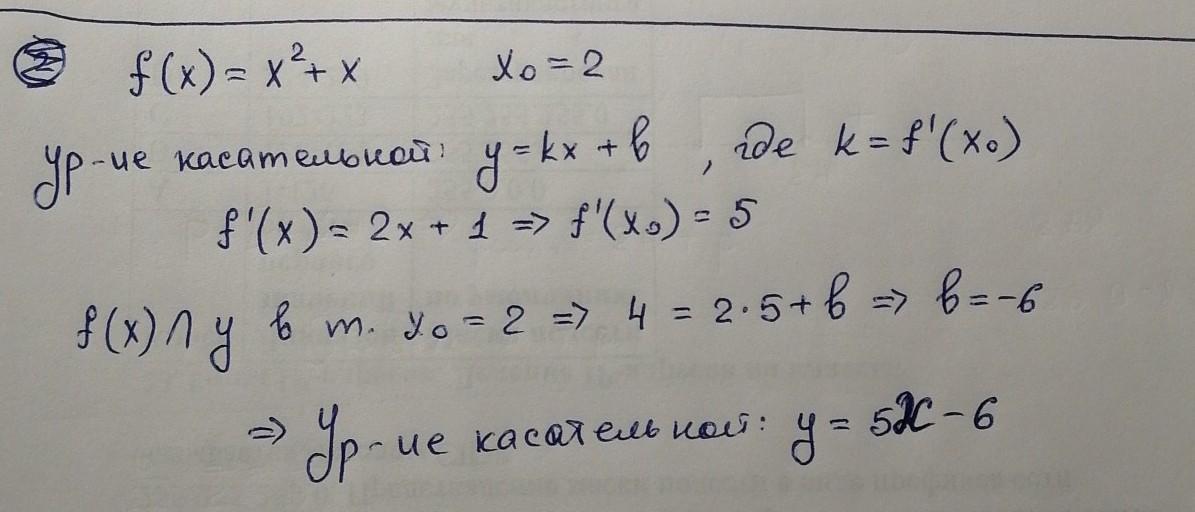 2 f(x) = x² + x x₀ = 2
ур-ие касательной: y = kx + b, где k = f'(x₀)
f'(x) = 2x + 1 ⇒ f'(x₀) = 5
f(x) ∩ y в т. x₀ = 2 ⇒ 4 = 2·5 + b ⇒ b = -6
⇒ Ур-ие касательной: y = 5x - 6